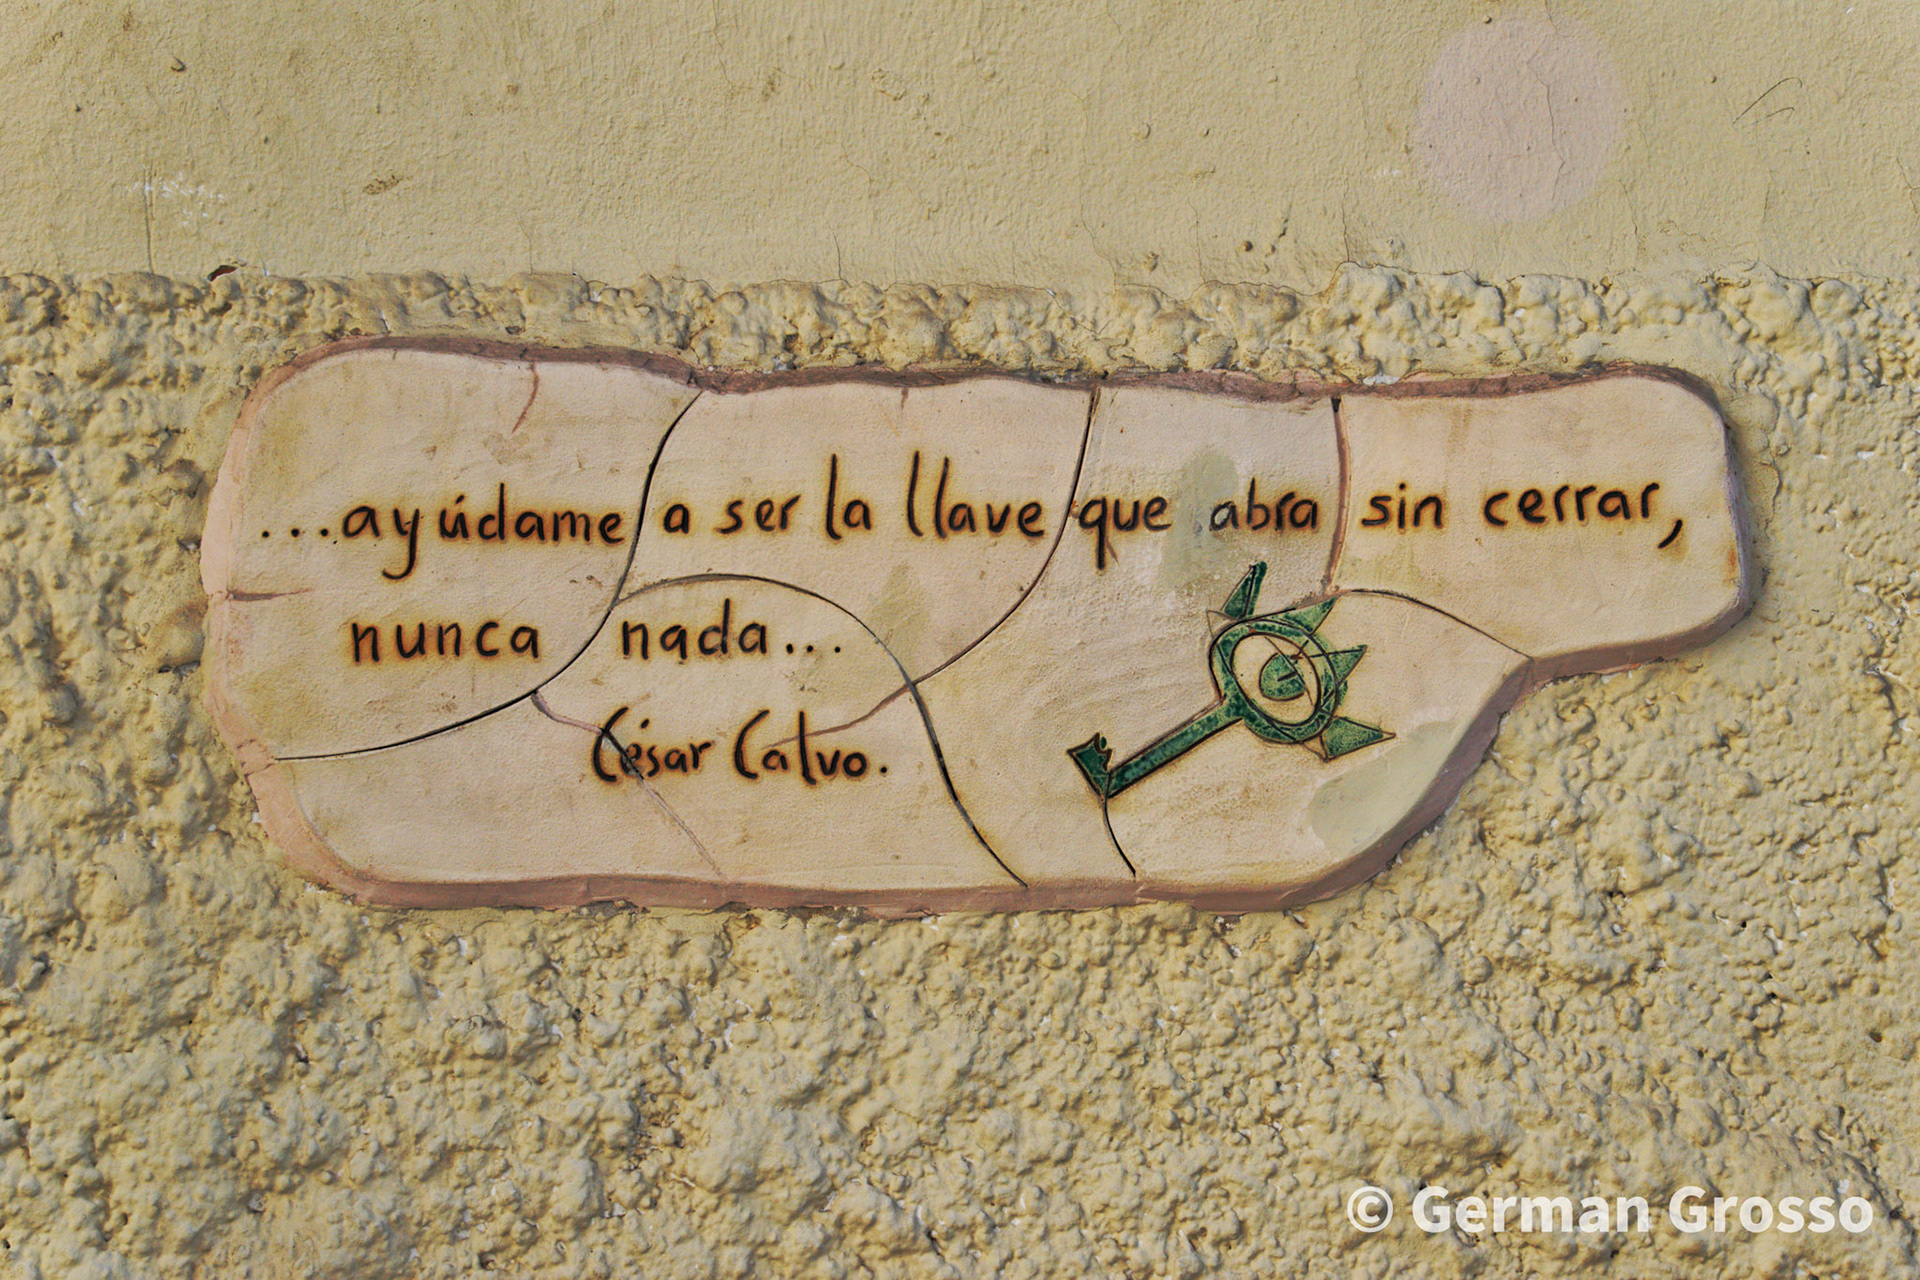 ...ayúdame a ser la llave que abra sin cerrar,
nunca nada...
César Calvo.
© German Grosso